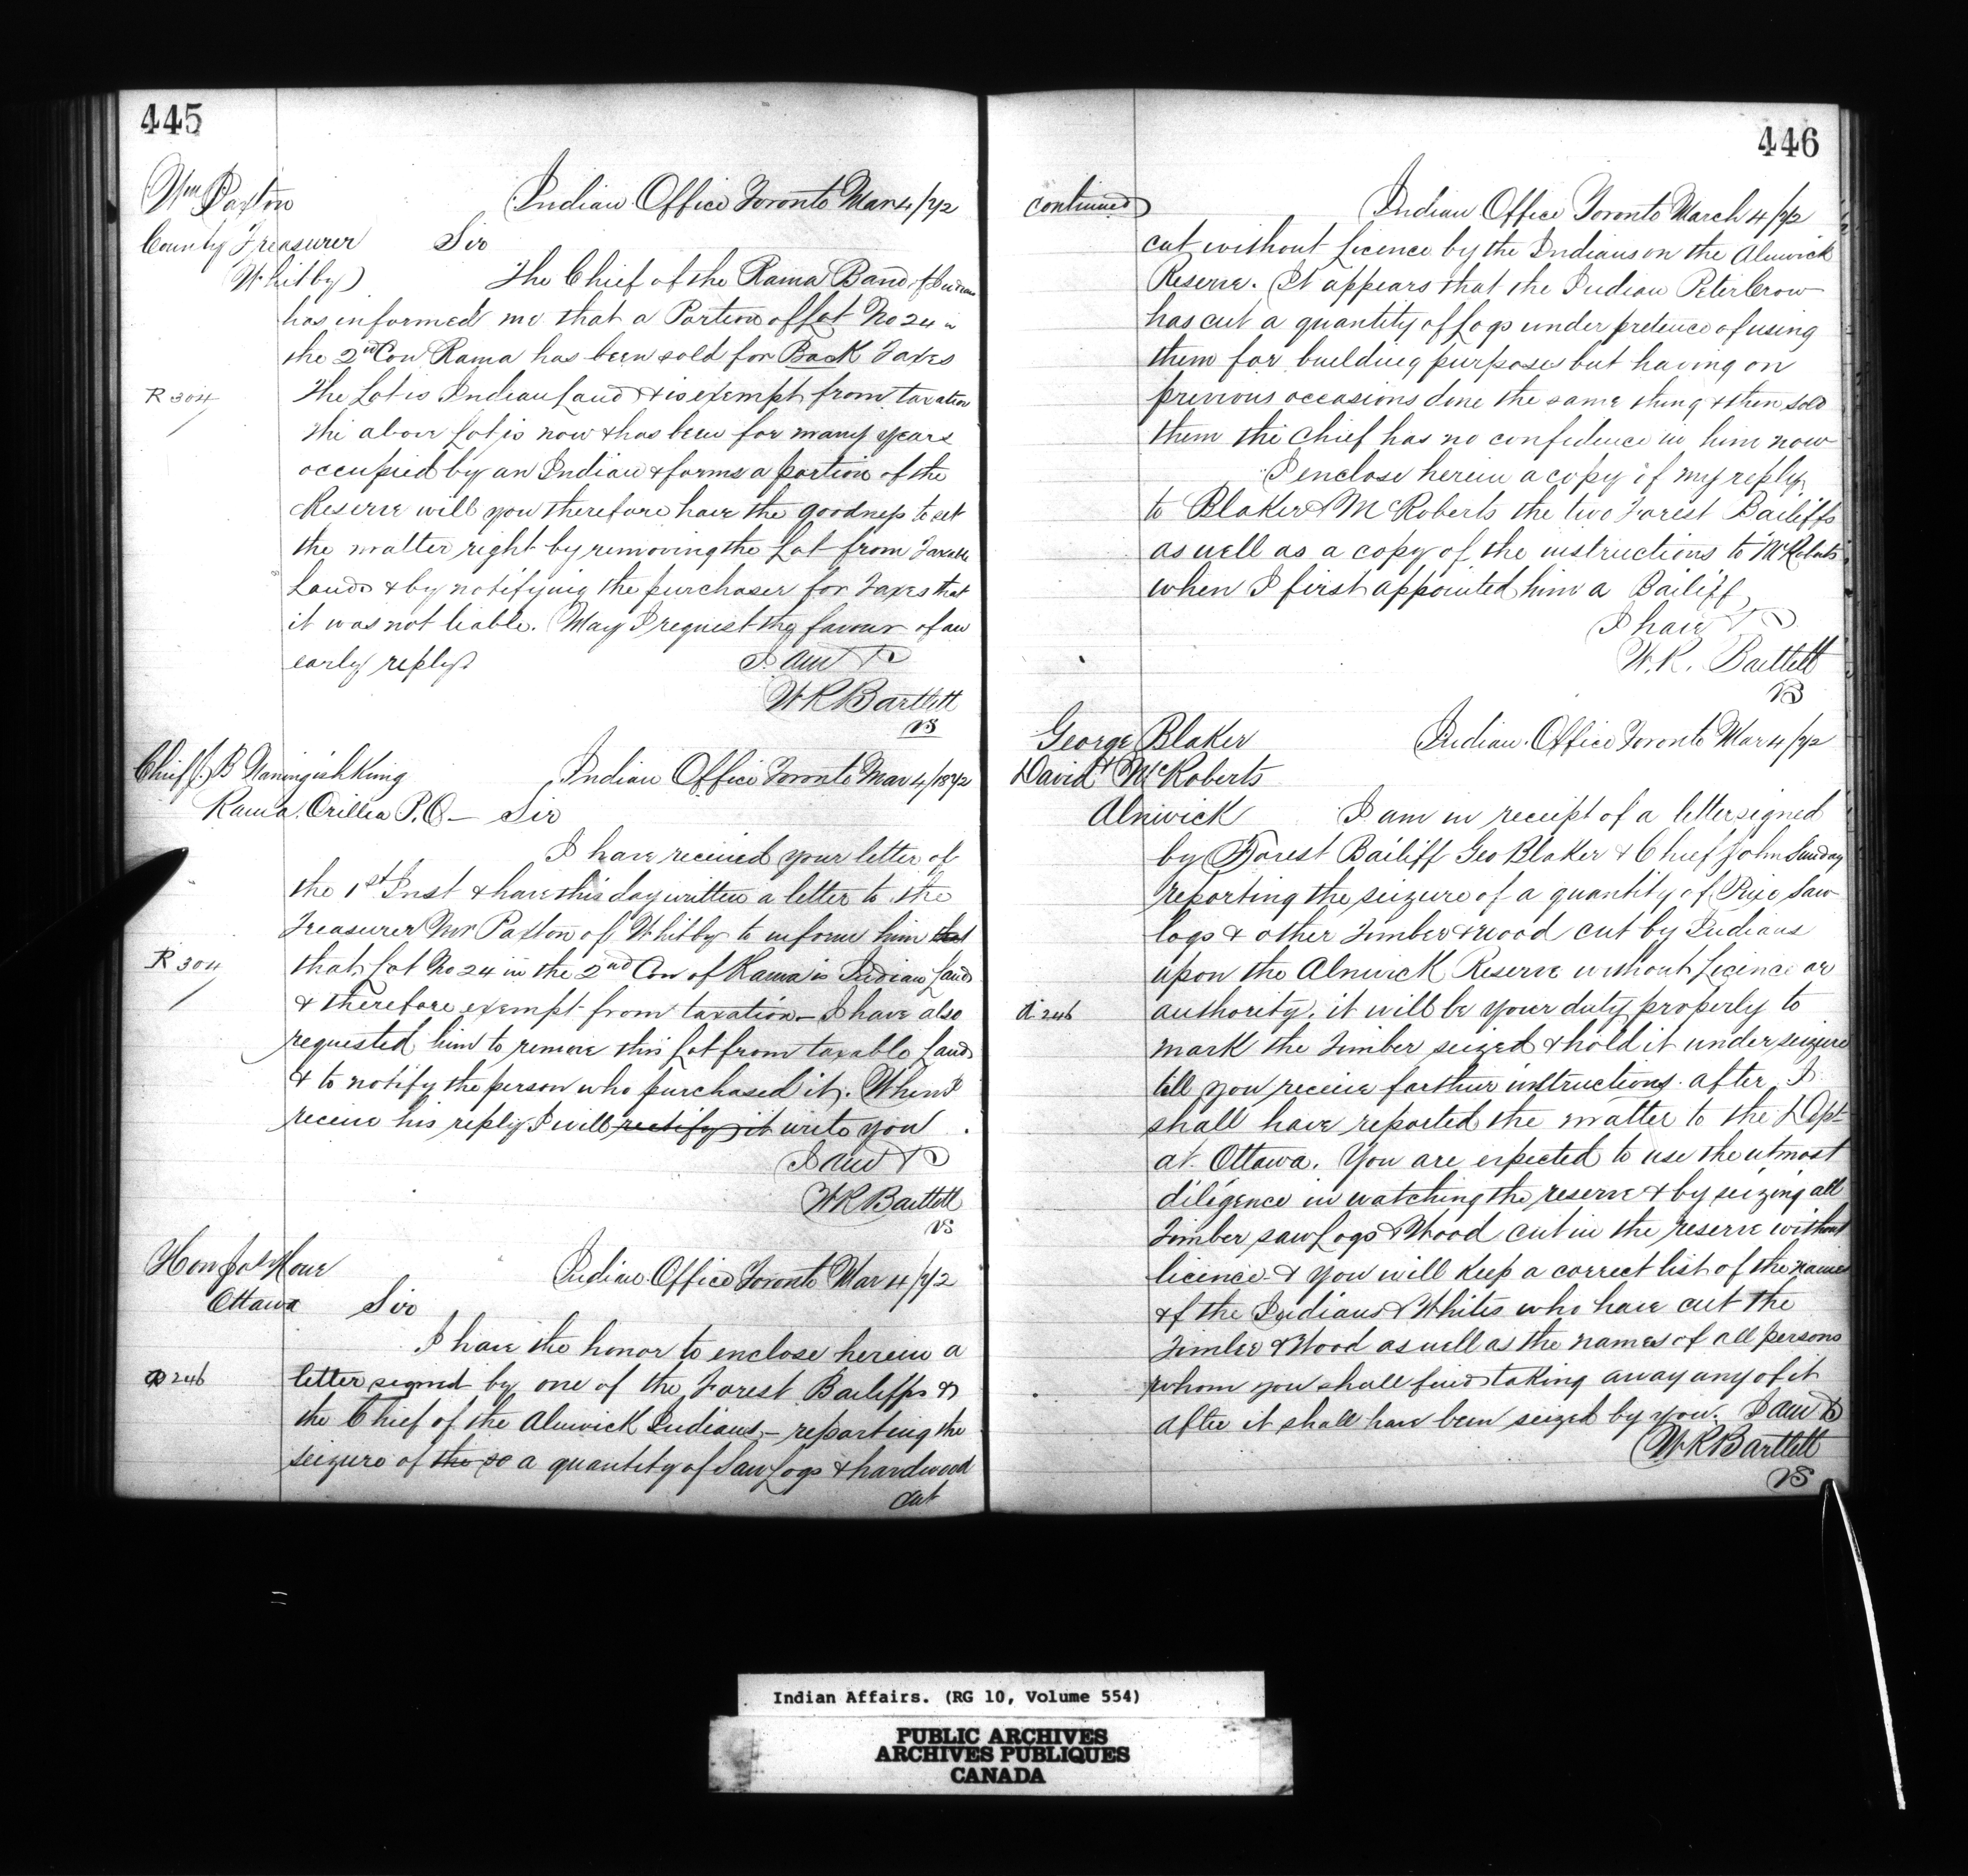 445
Wm Paxton
County Treasurer
Whitby
Indian Office Toronto Mar 4/72
Sir
The Chief of the Rama Band of Indians
has informed me that a Portion of Lot No 24 in
the 2nd Con Rama has been sold for Back Taxes
R 304
The Lot is Indian Land & is exempt from taxation
The above Lot is now & has been for many years
occupied by an Indian & forms a portion of the
Reserve will you therefore have the goodness to set
the matter right by removing the Lot from Taxable
Lands & by notifying the purchaser for Taxes that
it was not liable. May I request the favour of an
early reply
I am &
WR Bartlett
Chief J. B Naningishkung
Rama. Orillia P.O —
Indian Office Toronto Mar 4/1872
Sir
I have received your letter of
the 1st Inst & have this day written a letter to the
Treasurer Mr Paxton of Whitby to inform him that
R 304
that Lot No 24 in the 2nd Con of Rama is Indian Land
& therefore exempt from taxation – I have also
requested him to remove this Lot from taxable Lands
& to notify the person who purchased it. When I
receive his reply I will rectify it write you
I am &
WR Bartlett
Hon Jos Howe
Ottawa
Indian Office Toronto Mar 4/72
Sir
I have the honor to enclose herein a
A 246
letter signed by one of the Forest Bailiffs &
the Chief of the Alnwick Indians, – reporting the
seizure of the so a quantity of Saw Logs & hardwood
cut
446
continued
Indian Office Toronto March 4/72
cut without Licence by the Indians on the Alnwick
Reserve. It appears that the Indian Peter Crow
has cut a quantity of Logs under pretence of using
them for building purposes but having on
previous occasions done the same thing & then sold
them the Chief has no confidence in him now
I enclose herein a copy of my reply
to Blaker & McRoberts the two Forest Bailiffs
as well as a copy of the instructions to McRoberts
when I first appointed him a Bailiff
I have &
W.R. Bartlett
George Blaker
& David McRoberts
Alnwick
Indian Office Toronto Mar 4/72
I am in receipt of a letter signed
by Forest Bailiff Geo Blaker & Chief John Sunday
reporting the seizure of a quantity of Pine Saw
logs & other Timber & wood cut by Indians
upon the Alnwick Reserve without Licence or
A 246
authority, it will be your duty properly to
mark the Timber seized & hold it under seizure
till you receive farther instructions after I
shall have reported the matter to the Dept
at Ottawa. You are expected to use the utmost
diligence in watching the reserve & by seizing all
Timber saw Logs & Wood cut in the reserve without
licence & you will keep a correct list of the names
of the Indians & Whites who have cut the
Timber & Wood as well as the names of all persons
whom you shall find taking away any of it
after it shall have been seized by you. I am &
WR Bartlett
Indian Affairs. (RG 10, Volume 554)
PUBLIC ARCHIVES
ARCHIVES PUBLIQUES
CANADA